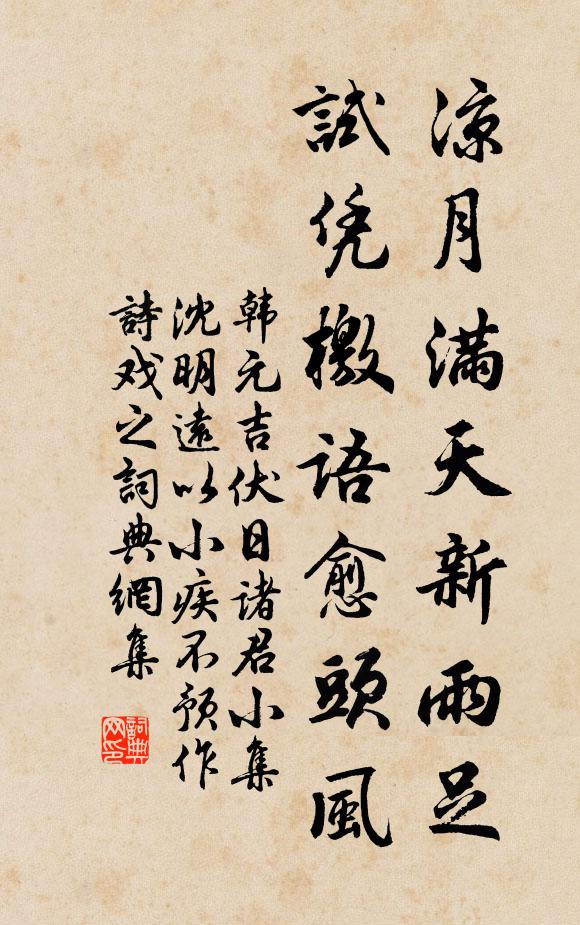 涼月满天新雨足
試凭檄語愈頭風
韩元吉伏日诸君小集
沈明遠以小疾不预作
詩戏之詞典網集
詞典网印